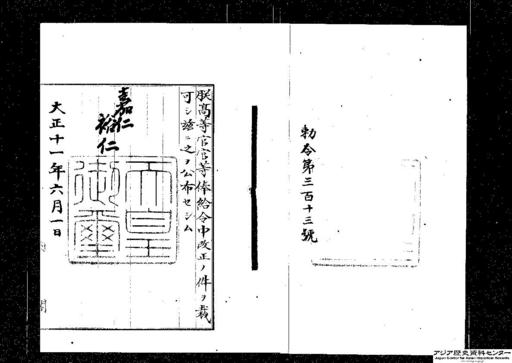 勅令第三百十三號
朕高等官官等俸給令中改正ノ件ヲ裁
可シ玆ニ之ヲ公布セシム
嘉仁
裕仁
天皇御璽
大正十一年六月一日
アジア歴史資料センター
Japan Center for Asian Historical Records